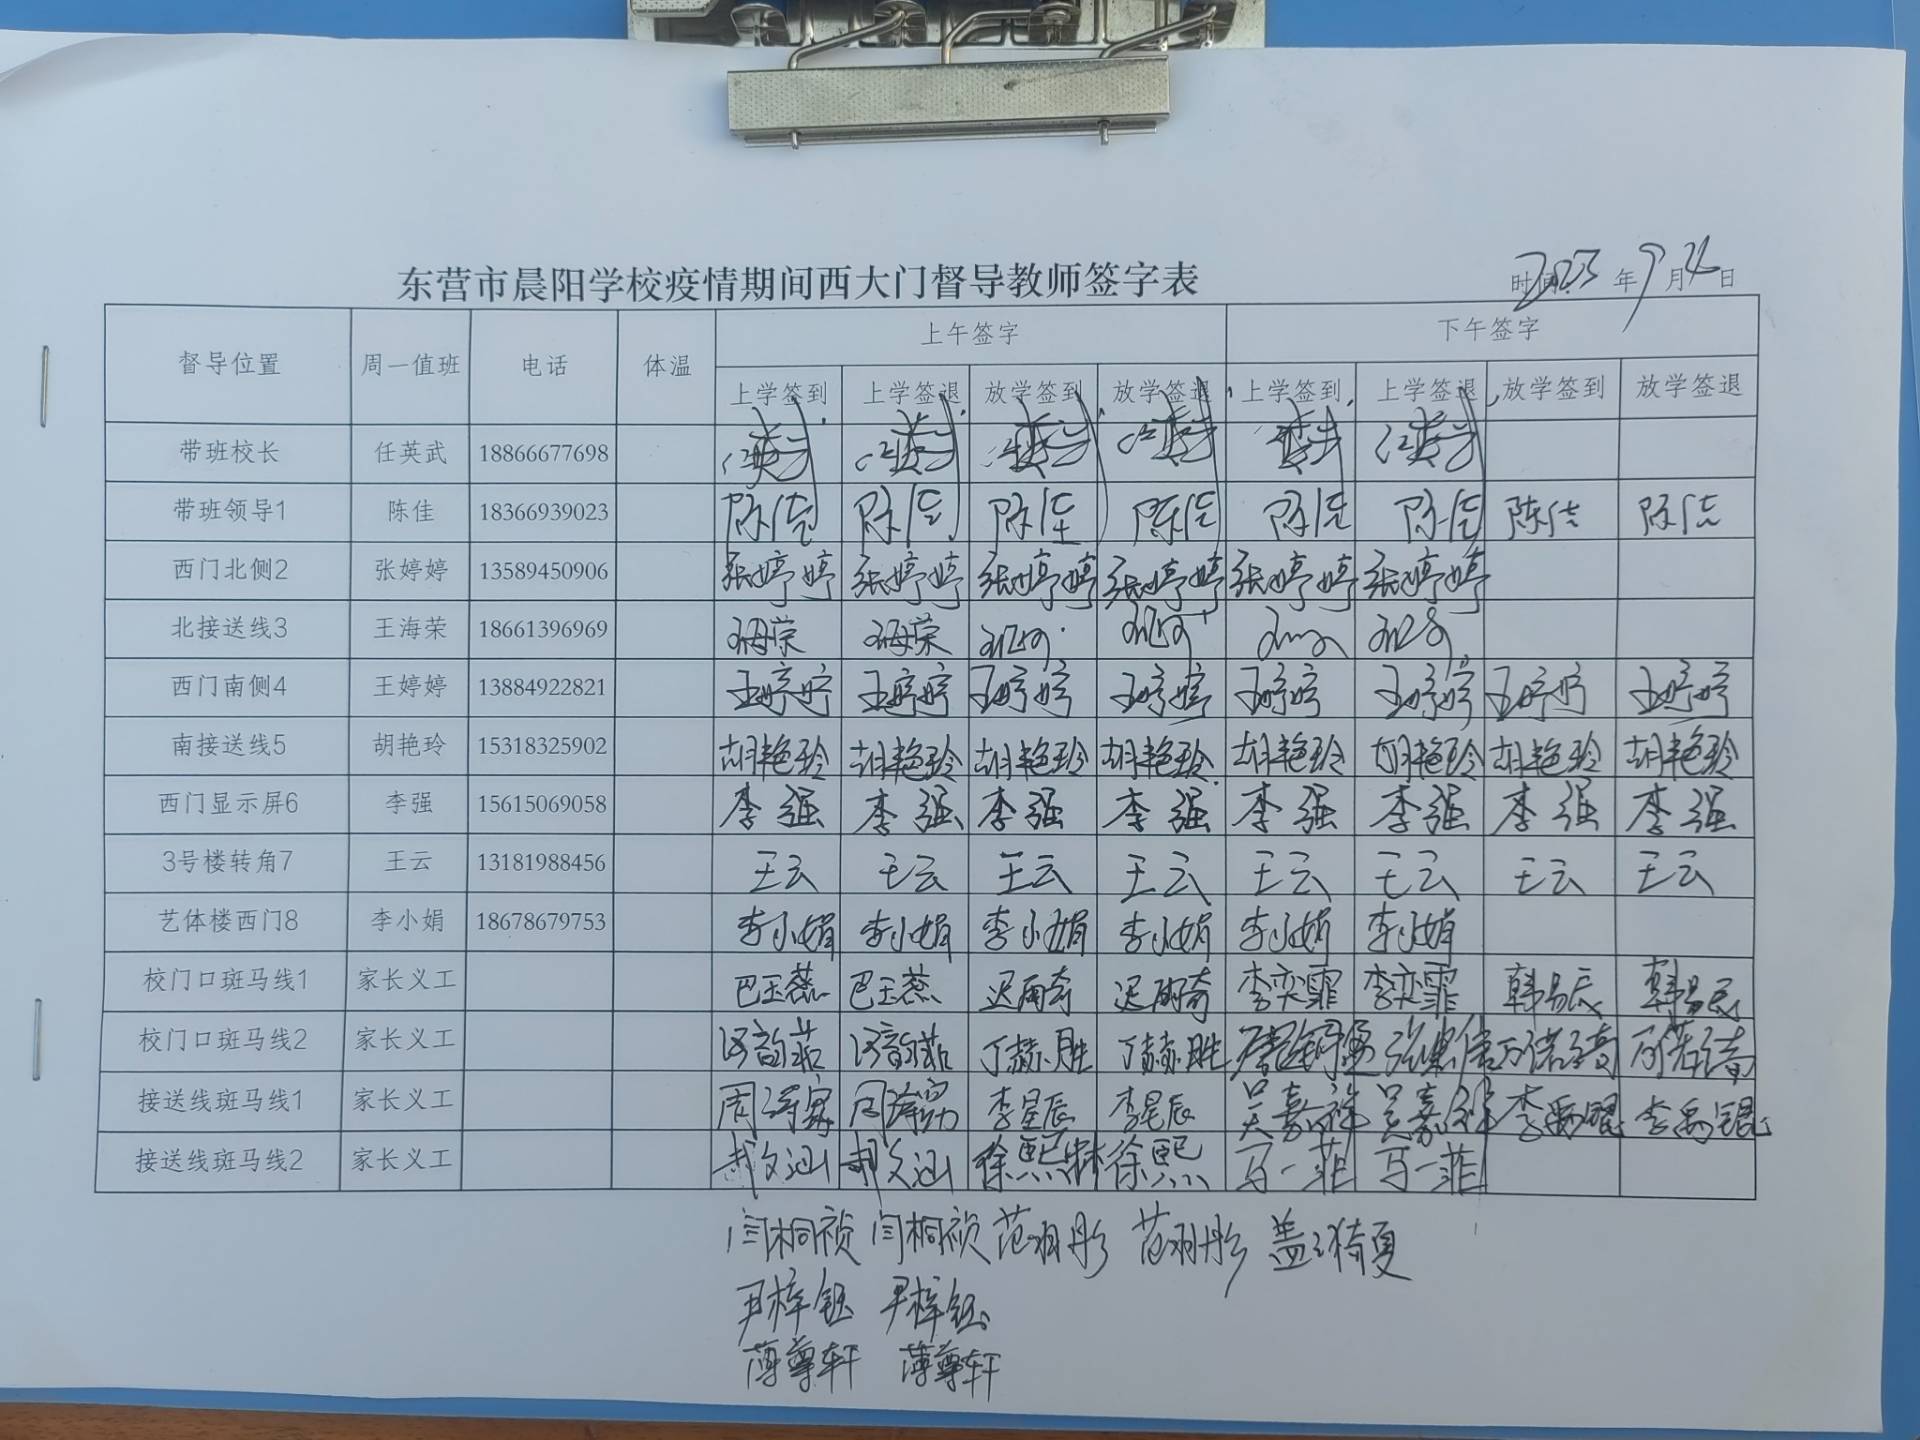 东营市晨阳学校疫情期间西大门督导教师签字表
时间 2023 年 9 月 日
督导位置 周一值班 电话 体温 上午签字 下午签字
上学签到 上学签退 放学签到 放学签退 上学签到 上学签退 放学签到 放学签退
带班校长 任英武 18866677698
带班领导1 陈佳 18366939023 陈佳 陈佳 陈佳 陈佳 陈佳 陈佳 陈佳 陈佳
西门北侧2 张婷婷 13589450906 张婷婷 张婷婷 张婷婷 张婷婷 张婷婷 张婷婷
北接送线3 王海荣 18661396969 王海荣 王海荣
西门南侧4 王婷婷 13884922821 王婷婷 王婷婷 王婷婷 王婷婷 王婷婷 王婷婷 王婷婷 王婷婷
南接送线5 胡艳玲 15318325902 胡艳玲 胡艳玲 胡艳玲 胡艳玲 胡艳玲 胡艳玲 胡艳玲 胡艳玲
西门显示屏6 李强 15615069058 李强 李强 李强 李强 李强 李强 李强 李强
3号楼转角7 王云 13181988456 王云 王云 王云 王云 王云 王云 王云 王云
艺体楼西门8 李小娟 18678679753 李小娟 李小娟 李小娟 李小娟 李小娟 李小娟
校门口斑马线1 家长义工 巴玉蕊 巴玉蕊 迟雨奇 迟雨奇 李奕霏 李奕霏 韩易辰 韩易辰
校门口斑马线2 家长义工 丁赫胜 丁赫胜
接送线斑马线1 家长义工 李星辰 李星辰 吴嘉祥 吴嘉祥 李禹锟 李禹锟
接送线斑马线2 家长义工 郝文涵 郝文涵 徐熙林 徐熙 马一菲 马一菲
闫桐祯 闫桐祯 范羽彤 范羽彤 盖
尹梓钰 尹梓钰
薄尊轩 薄尊轩